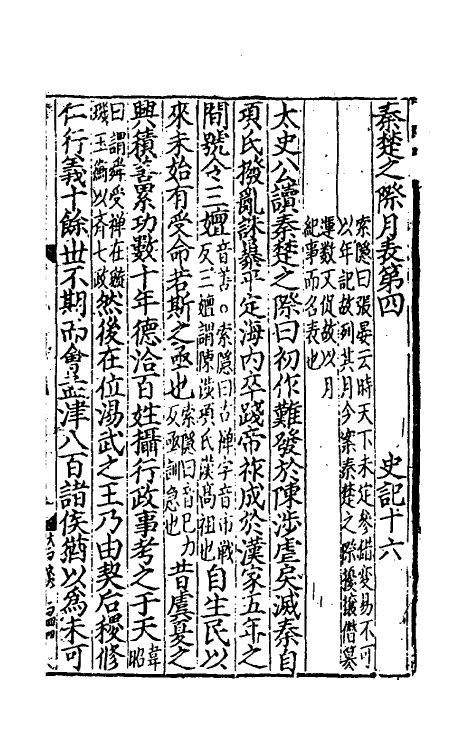 秦楚之際月表第四 史記十六
索隱曰張晏云時天下未定參錯變易不可
以年記故列其月今案秦楚之際擾攘僭篡
運數又促故以月
紀事而名表也
太史公讀秦楚之際曰初作難發於陳涉虐戾滅秦自
項氏撥亂誅暴平定海內卒踐帝祚成於漢家五年之
間號令三嬗音善。索隱曰古禪字音市戰反三嬗謂陳涉項氏漢高祖也自生民以
來未始有受命若斯之亟也索隱曰音己力反亟訓急也昔虞夏之
興積善累功數十年德洽百姓攝行政事考之于天韋昭
曰謂舜受禪在璇璣玉衡以齊七政然後在位湯武之王乃由契后稷修
仁行義十餘世不期而會孟津八百諸侯猶以爲未可